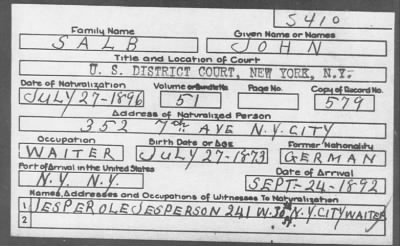 S410
Family Name Given Name or Names
SALB JOHN
Title and Location of Court
U. S. DISTRICT COURT, NEW YORK, N.Y.
Date of Naturalization Volume or Bundle No. Page No. Copy of Record No.
JULY 27-1896 51 579
Address of Naturalized Person
352 7th AVE N.Y. CITY
Occupation Birth Date or Age Former Nationality
WAITER JULY-27-1873 GERMAN
Port of Arrival in the United States Date of Arrival
N.Y. N.Y. SEPT-24-1892
Names, Addresses and Occupations of Witnesses To Naturalization
1 JESPEROLE JESPERSON 241 W. 30 N.Y. CITY WAITER
2